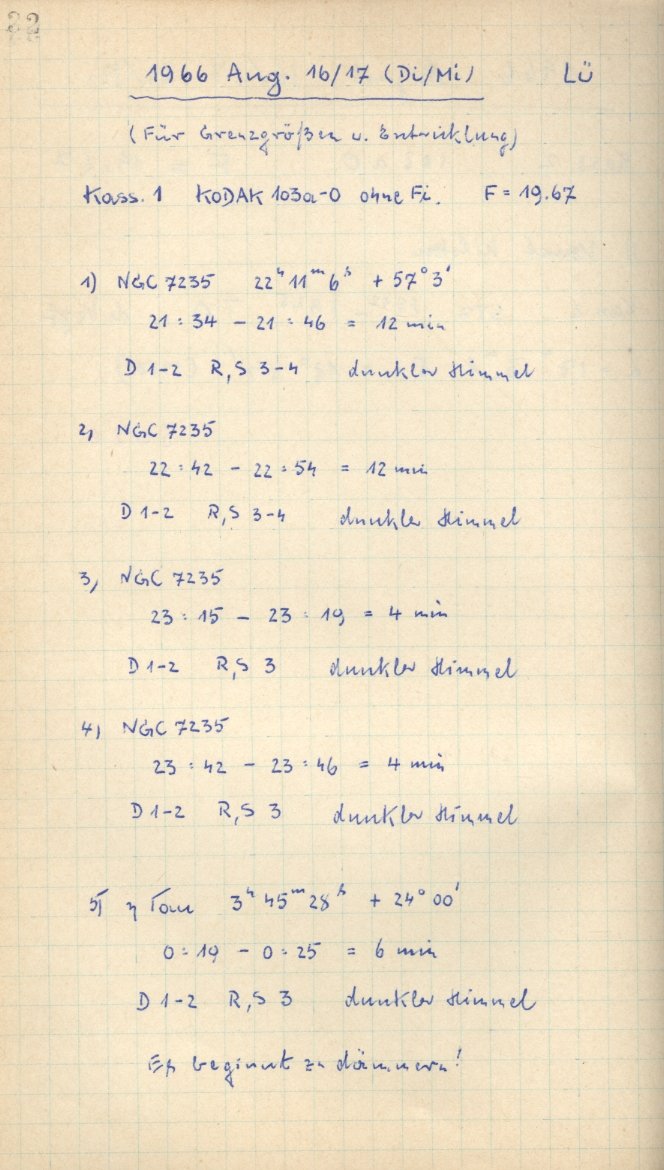 22
1966 Aug. 16/17 (Di/Mi) Lü
(Für Grenzgrößen u. Entwicklung)
Kass. 1 KODAK 103a-O ohne Fi. F = 19.67
1) NGC 7235 22ʰ 11ᵐ 6ˢ + 57° 3'
21 : 34 – 21 : 46 = 12 min
D 1-2 R,S 3-4 dunkler Himmel
2) NGC 7235
22 : 42 – 22 : 54 = 12 min
D 1-2 R,S 3-4 dunkler Himmel
3) NGC 7235
23 : 15 – 23 : 19 = 4 min
D 1-2 R,S 3 dunkler Himmel
4) NGC 7235
23 : 42 – 23 : 46 = 4 min
D 1-2 R,S 3 dunkler Himmel
5) η Tau 3ʰ 45ᵐ 28ˢ + 24° 00'
0 : 19 – 0 : 25 = 6 min
D 1-2 R,S 3 dunkler Himmel
Es beginnt zu dämmern!